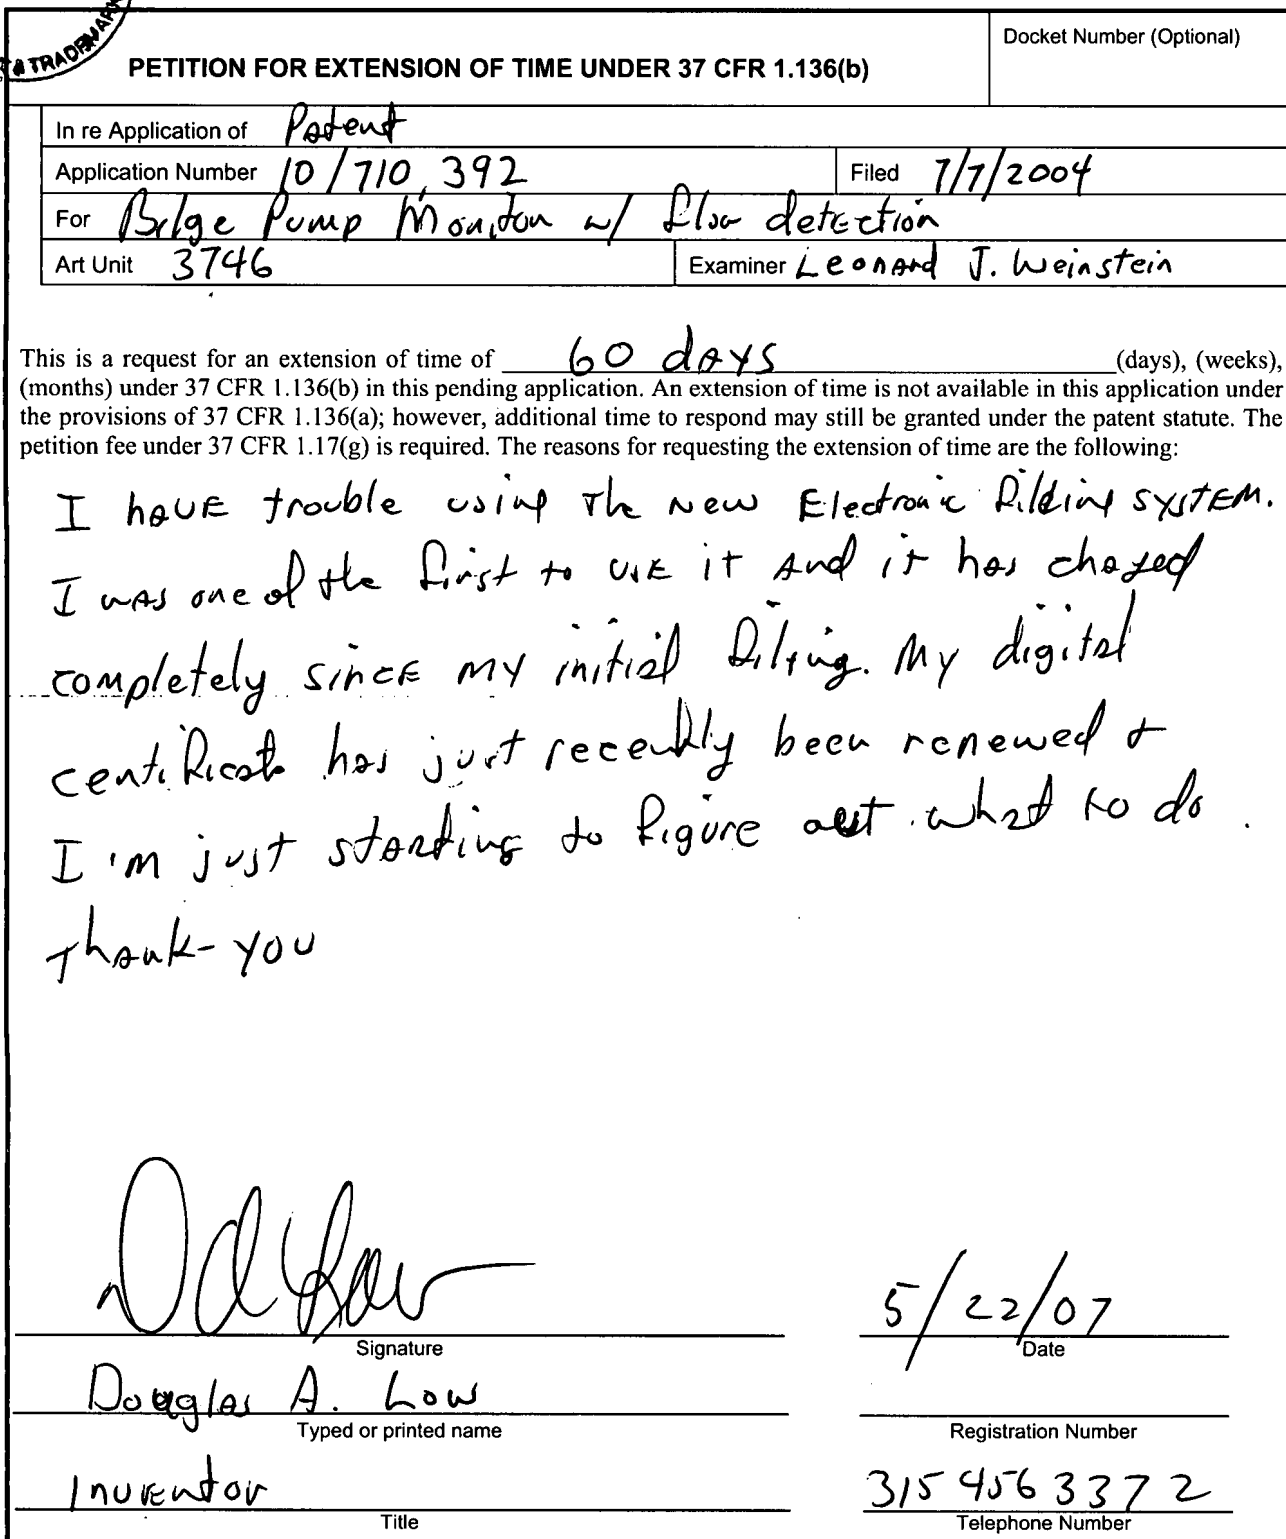 & TRADEMARK
Docket Number (Optional)
PETITION FOR EXTENSION OF TIME UNDER 37 CFR 1.136(b)
In re Application of Patent
Application Number 10/710,392 Filed 7/7/2004
For Bilge Pump Moniton w/ flow detection
Art Unit 3746 Examiner Leonard J. Weinstein
This is a request for an extension of time of 60 days (days), (weeks),
(months) under 37 CFR 1.136(b) in this pending application. An extension of time is not available in this application under
the provisions of 37 CFR 1.136(a); however, additional time to respond may still be granted under the patent statute. The
petition fee under 37 CFR 1.17(g) is required. The reasons for requesting the extension of time are the following:
I have trouble using the new Electronic filding system.
I was one of the first to use it and it has chaged
completely since my initial filing. My digital
centificate has just recently been renewed &
I'm just starting to figure out what to do.
Thank-you
Signature
5/22/07
Date
Douglas A. Low
Typed or printed name
Registration Number
Inventor
Title
315 456 3372
Telephone Number